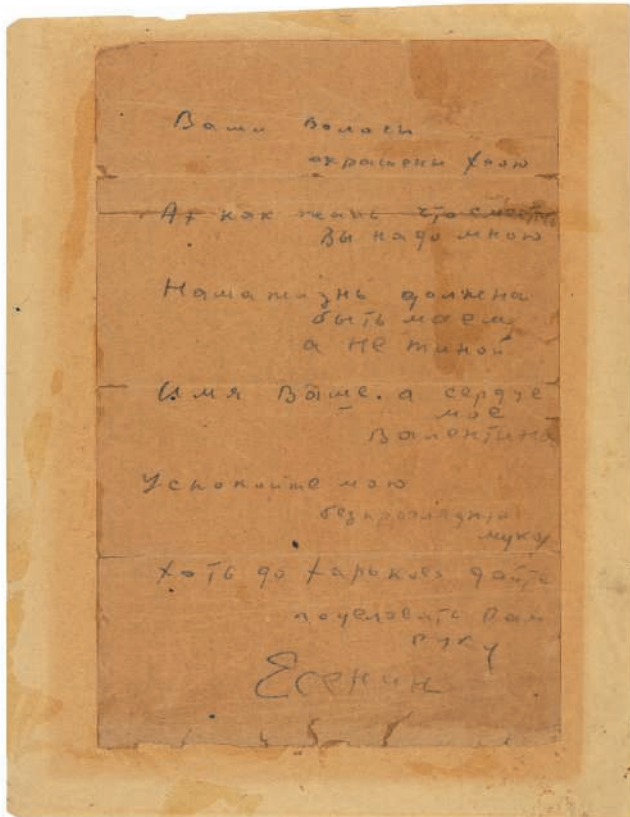 Ваши волосы
окрашены хною
Ах как жаль что смеетесь
Вы надо мною
Наша жизнь должна
быть маем
а не тиной
Имя Ваше. а сердце
мое
Валентина
Успокойте мою
муку
Хоть до Харькова дайте
поцеловать Вам
руку
Есенин